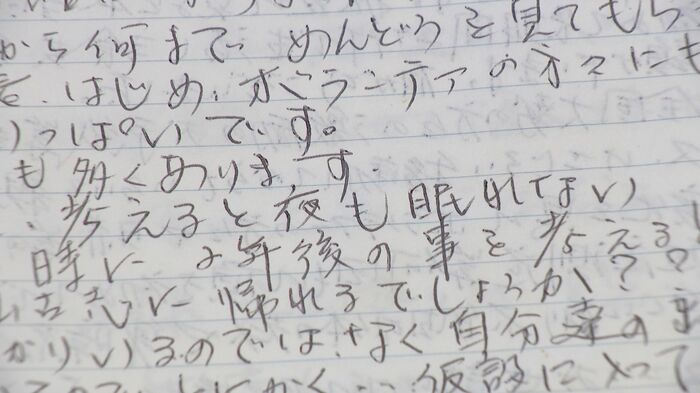 から何まで、めんどうを見てもら
はじめ、ボランティアの方々にも
いっぱいです。
も多くあります。
、考えると夜も眠れてない
時に 年後の事を考える
に帰れるでしょうか??
かりいるのではなく自分達の
とにかく‥仮設に入って